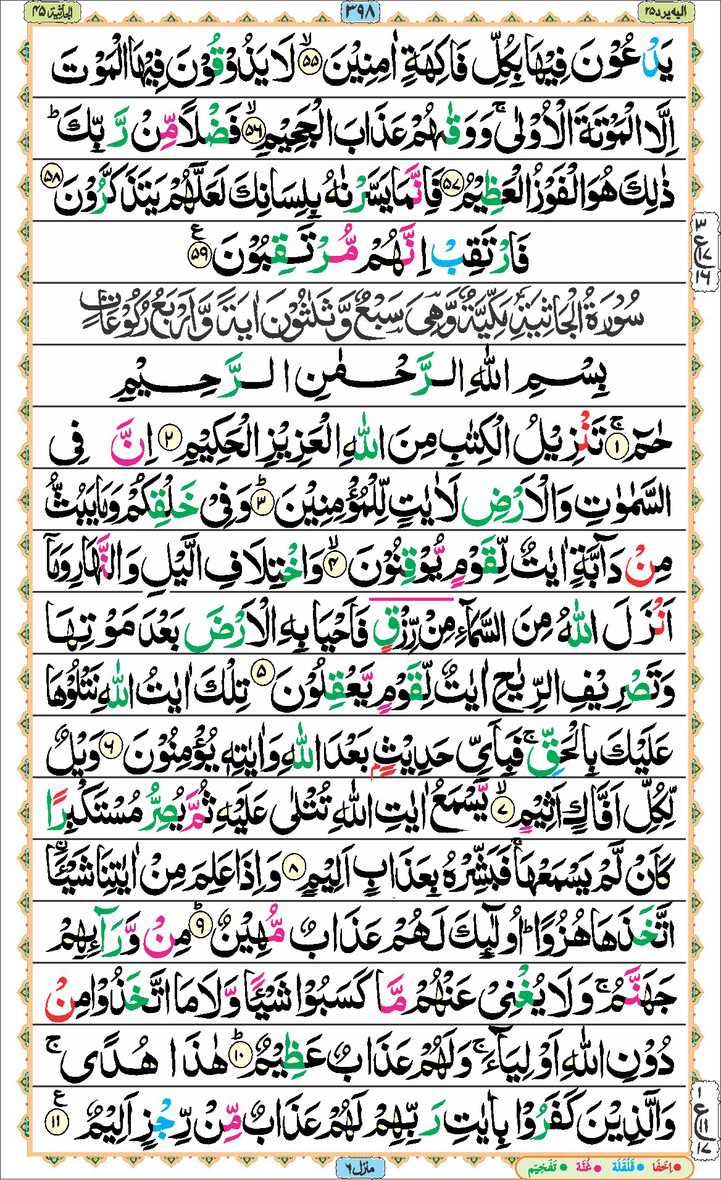 الیہ یرد ۲۵ ۳۹۸ الجاثیۃ ۴۵
يَدْعُوْنَ فِيْهَا بِكُلِّ فَاكِهَةٍ اٰمِنِيْنَ ۙ‏﴿۵۵﴾ لَا يَذُوْقُوْنَ فِيْهَا الْمَوْتَ
اِلَّا الْمَوْتَةَ الْاُوْلٰى ۚ وَوَقٰىهُمْ عَذَابَ الْجَحِيْمِ ۙ‏﴿۵۶﴾ فَضْلًا مِّنْ رَّبِّكَ ؕ
ذٰلِكَ هُوَ الْفَوْزُ الْعَظِيْمُ ‏﴿۵۷﴾ فَاِنَّمَا يَسَّرْنٰهُ بِلِسَانِكَ لَعَلَّهُمْ يَتَذَكَّرُوْنَ ‏﴿۵۸﴾
فَارْتَقِبْ اِنَّهُمْ مُّرْتَقِبُوْنَ ‏﴿۵۹﴾ ع
۳ ۱۷ ۱۶
سُوْرَةُ الْجَاثِيَةِ مَكِّيَّةٌ وَّهِيَ سَبْعٌ وَّثَلٰثُوْنَ اٰيَةً وَّاَرْبَعُ رُكُوْعَاتٍ
بِسْمِ اللّٰهِ الرَّحْمٰنِ الرَّحِيْمِ
حٰمٓ ۚ‏﴿۱﴾ تَنْزِيْلُ الْكِتٰبِ مِنَ اللّٰهِ الْعَزِيْزِ الْحَكِيْمِ ‏﴿۲﴾ اِنَّ فِى
السَّمٰوٰتِ وَالْاَرْضِ لَاٰيٰتٍ لِّلْمُؤْمِنِيْنَ ؕ‏﴿۳﴾ وَفِىْ خَلْقِكُمْ وَمَا يَبُثُّ
مِنْ دَآبَّةٍ اٰيٰتٌ لِّقَوْمٍ يُّوْقِنُوْنَ ۙ‏﴿۴﴾ وَاخْتِلَافِ الَّيْلِ وَالنَّهَارِ وَمَاۤ
اَنْزَلَ اللّٰهُ مِنَ السَّمَآءِ مِنْ رِّزْقٍ فَاَحْيَا بِهِ الْاَرْضَ بَعْدَ مَوْتِهَا
وَتَصْرِيْفِ الرِّيٰحِ اٰيٰتٌ لِّقَوْمٍ يَّعْقِلُوْنَ ‏﴿۵﴾ تِلْكَ اٰيٰتُ اللّٰهِ نَتْلُوْهَا
عَلَيْكَ بِالْحَقِّ ۚ فَبِاَىِّ حَدِيْثٍۢ بَعْدَ اللّٰهِ وَاٰيٰتِهٖ يُؤْمِنُوْنَ ‏﴿۶﴾ وَيْلٌ
لِّكُلِّ اَفَّاكٍ اَثِيْمٍ ۙ‏﴿۷﴾ يَّسْمَعُ اٰيٰتِ اللّٰهِ تُتْلٰى عَلَيْهِ ثُمَّ يُصِرُّ مُسْتَكْبِرًا
كَاَنْ لَّمْ يَسْمَعْهَا ۚ فَبَشِّرْهُ بِعَذَابٍ اَلِيْمٍ ‏﴿۸﴾ وَاِذَا عَلِمَ مِنْ اٰيٰتِنَا شَيْـًٔا
اۨتَّخَذَهَا هُزُوًا ؕ اُولٰٓٮِٕكَ لَهُمْ عَذَابٌ مُّهِيْنٌ ؕ‏﴿۹﴾ مِنْ وَّرَآٮِٕهِمْ
جَهَنَّمُ ۚ وَلَا يُغْنِىْ عَنْهُمْ مَّا كَسَبُوْا شَيْـًٔا وَّلَا مَا اتَّخَذُوْا مِنْ
دُوْنِ اللّٰهِ اَوْلِيَآءَ ۚ وَلَهُمْ عَذَابٌ عَظِيْمٌ ؕ‏﴿۱۰﴾ هٰذَا هُدًى ۚ
وَالَّذِيْنَ كَفَرُوْا بِاٰيٰتِ رَبِّهِمْ لَهُمْ عَذَابٌ مِّنْ رِّجْزٍ اَلِيْمٌ ‏﴿۱۱﴾ ع
۱ ۱۱ ۱۷
منزل ۶
اخفا قلقلة غنّة تفخیم